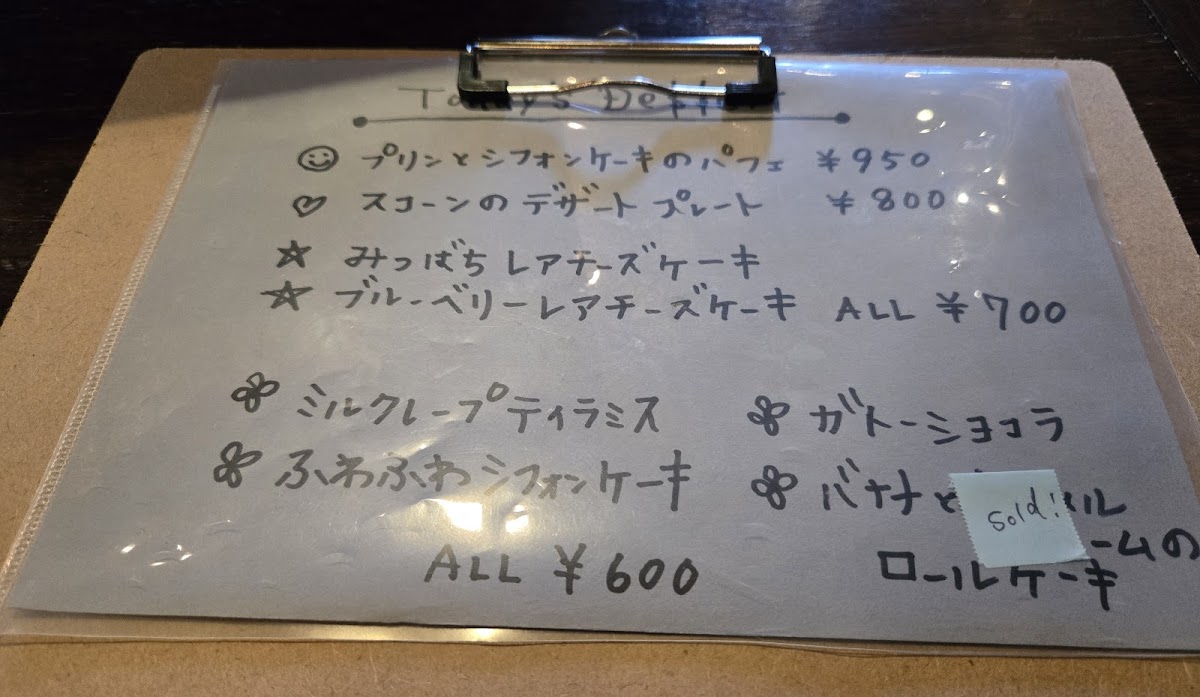 Today's
プリンとシフォンケーキのパフェ ¥950
スコーンのデザートプレート ¥800
みつばちレアチーズケーキ
ブルーベリーレアチーズケーキ ALL ¥700
ミルクレープティラミス
ガトーショコラ
ふわふわシフォンケーキ
バナナと
sold!
ルロールケーキ
ームの
ALL ¥600